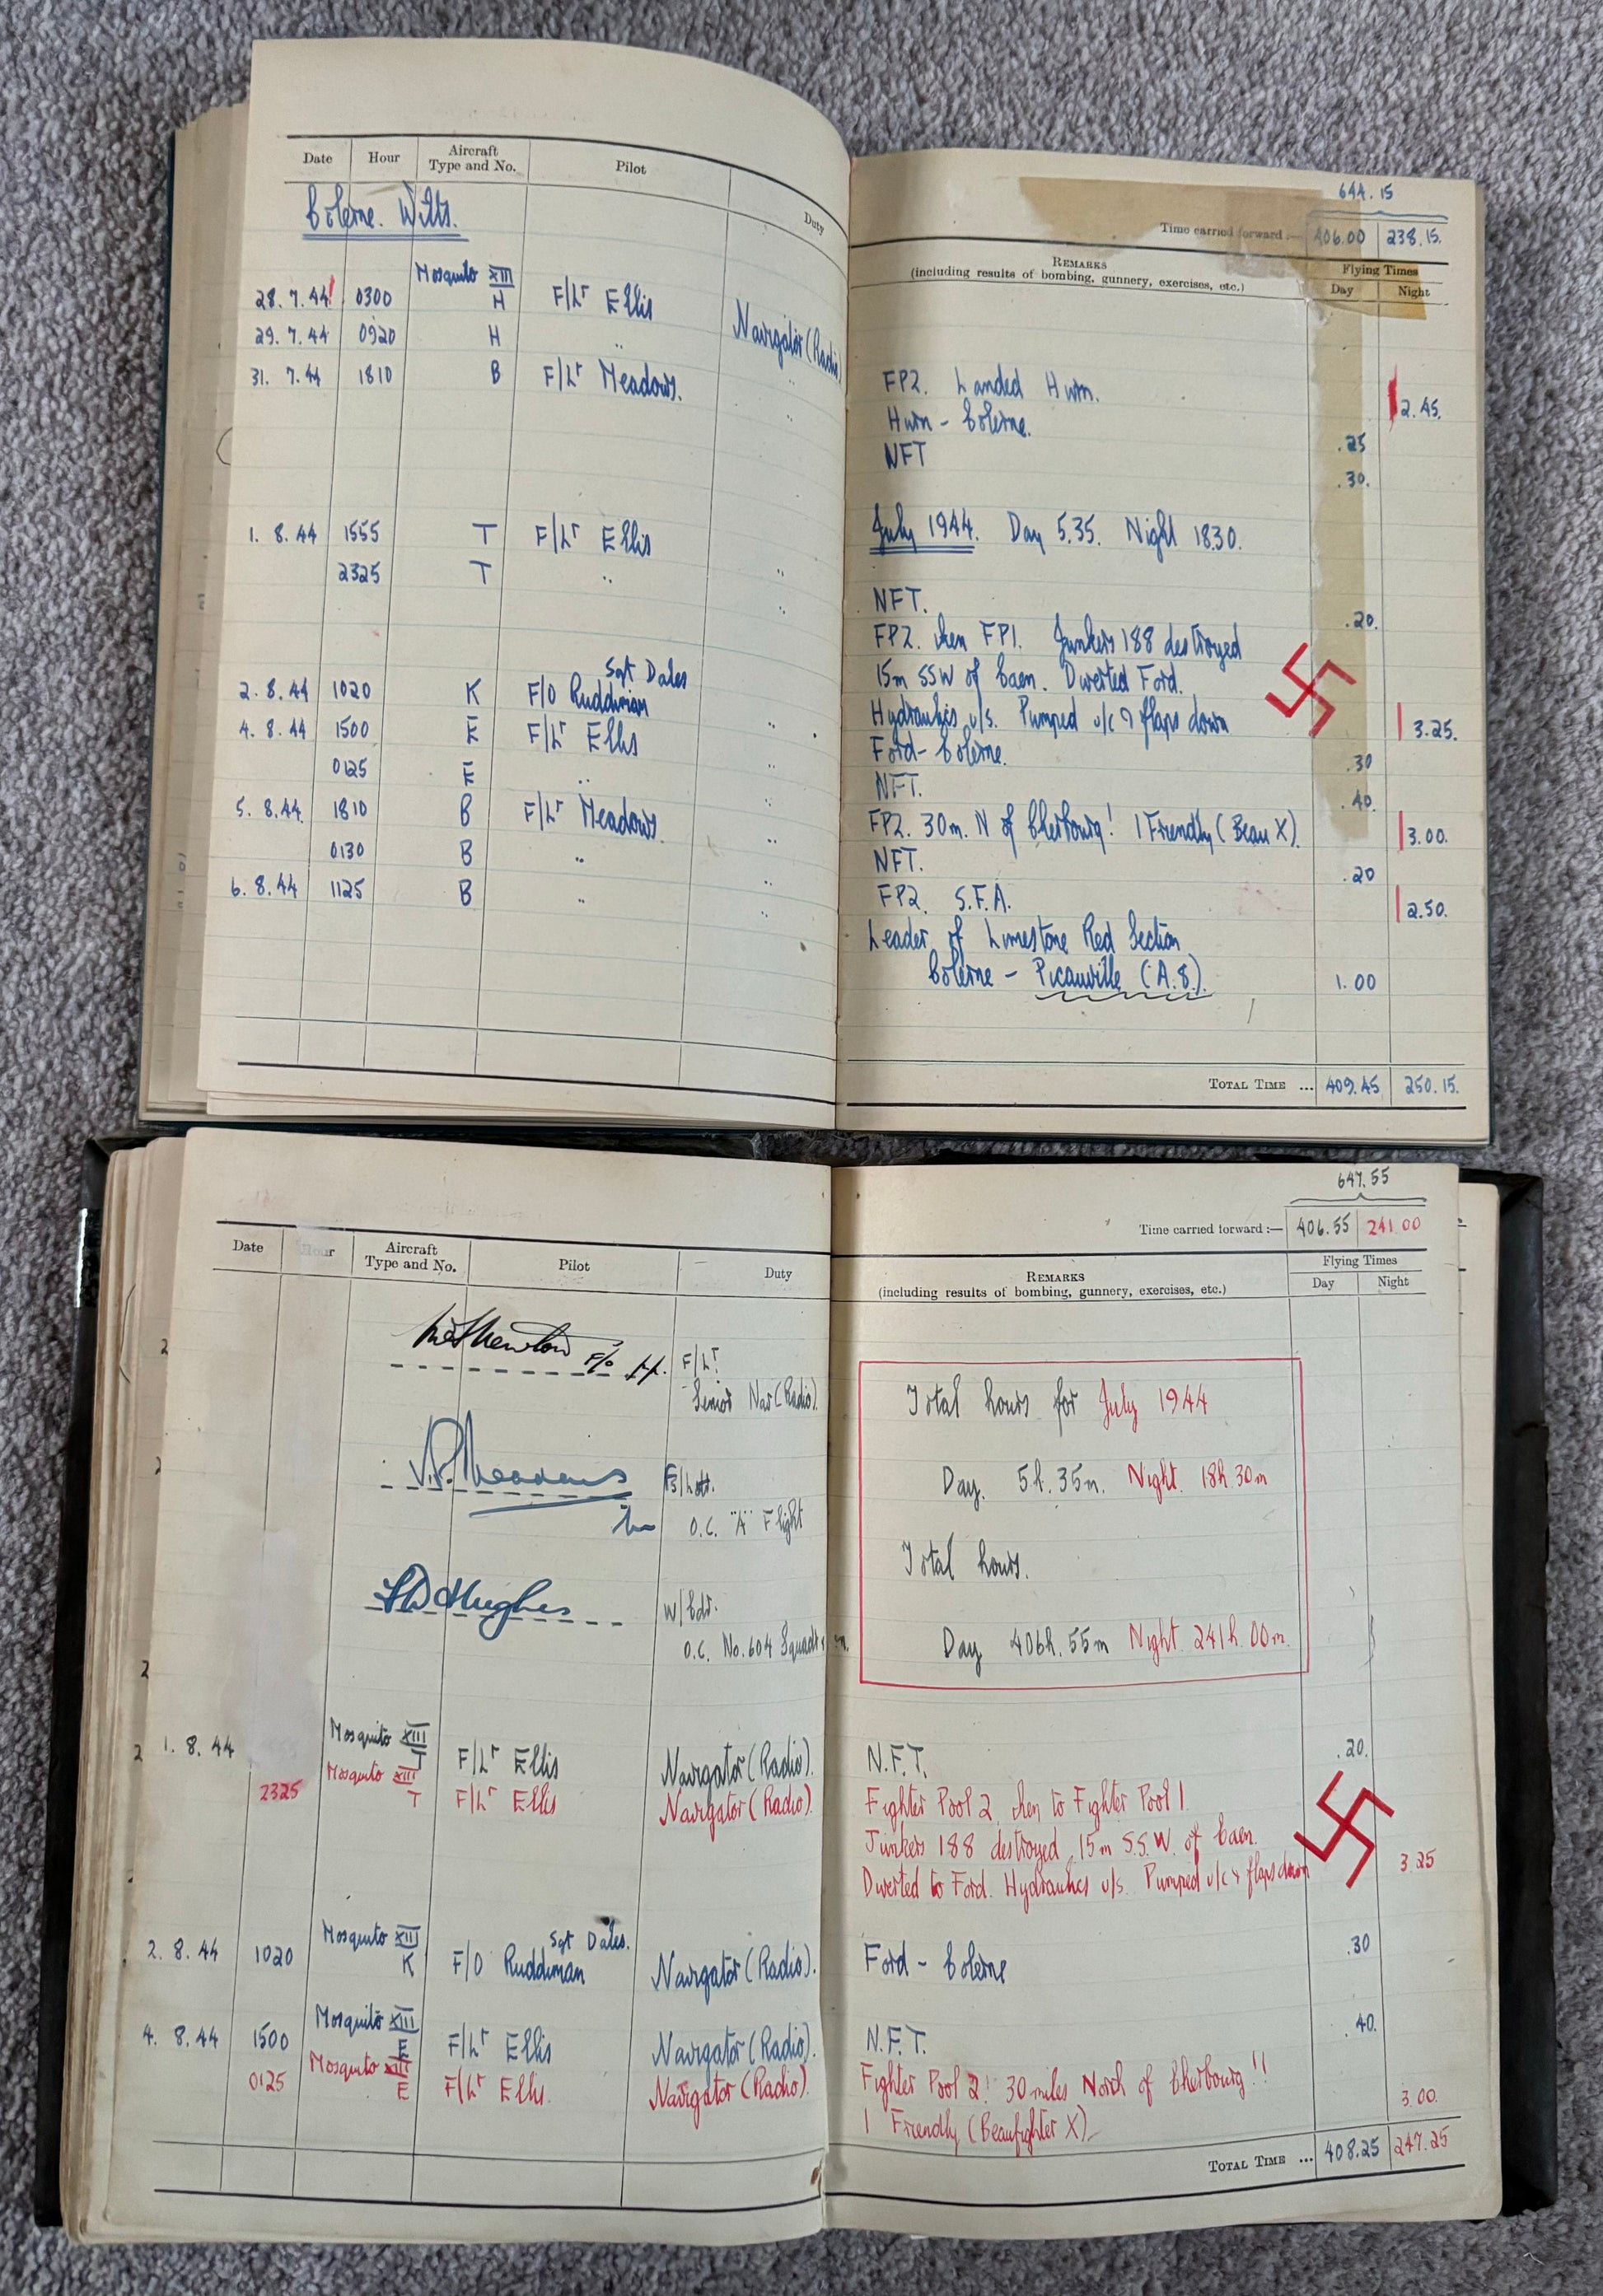 Date Hour Aircraft Type and No. Pilot Duty
Colerne. Wilts.
Mosquito XIII
28.7.44 0300 H F/Lt Ellis Navigator (Radio)
29.7.44 0920 H " "
31.7.44 1810 B F/Lt Meadows. "
1.8.44 1555 T F/Lt Ellis "
2325 T " "
Sgt Dales
2.8.44 1020 K F/O Ruddiman "
4.8.44 1500 E F/Lt Ellis "
0125 E " "
5.8.44 1810 B F/Lt Meadows. "
0130 B " "
6.8.44 1125 B " "
644.15
Time carried forward :— 406.00 238.15.
Remarks
(including results of bombing, gunnery, exercises, etc.)
Flying Times
Day Night
FP2. Landed Hurn. 2.45.
Hurn - Colerne. .25
NFT .30.
July 1944. Day 5.35. Night 18.30.
NFT. .20.
FP2. then FP1. Junkers 188 destroyed
15m SSW of Caen. Diverted Ford.
Hydraulics u/s. Pumped u/c & flaps down 3.25.
Ford - Colerne. .30
NFT. .40.
FP2. 30m. N of Cherbourg! 1 Friendly (Beau X). 3.00.
NFT. .20
FP2. S.F.A. 2.50.
Leader of Limestone Red Section
Colerne - Picauville (A.8.). 1.00
Total Time ... 409.45 250.15.
Date Hour Aircraft Type and No. Pilot Duty
F/O for F/Lt.
Senior Nav (Radio).
V.P. Meadows F/Lt.
O.C. "A" Flight
F.D. Hughes W/Cdr.
O.C. No. 604 Squadron.
Mosquito XIII
1.8.44 T F/Lt Ellis Navigator (Radio).
Mosquito XIII
2325 T F/Lt Ellis Navigator (Radio).
Mosquito XIII Sgt Dales.
2.8.44 1020 K F/O Ruddiman Navigator (Radio).
Mosquito XIII
4.8.44 1500 E F/Lt Ellis Navigator (Radio).
Mosquito XIII
0125 E F/Lt Ellis. Navigator (Radio).
647.55
Time carried forward :— 406.55 241.00
Remarks
(including results of bombing, gunnery, exercises, etc.)
Flying Times
Day Night
Total hours for July 1944
Day. 5h. 35m. Night. 18h. 30m
Total hours.
Day 406h. 55m Night. 241h. 00m.
N.F.T. .20.
Fighter Pool 2, then to Fighter Pool 1.
Junkers 188 destroyed 15m S.S.W. of Caen.
Diverted to Ford. Hydraulics u/s. Pumped u/c & flaps down 3.25
Ford - Colerne .30
N.F.T. .40.
Fighter Pool 2! 30 miles North of Cherbourg!!
1 Friendly (Beaufighter X). 3.00.
Total Time ... 408.25 247.25